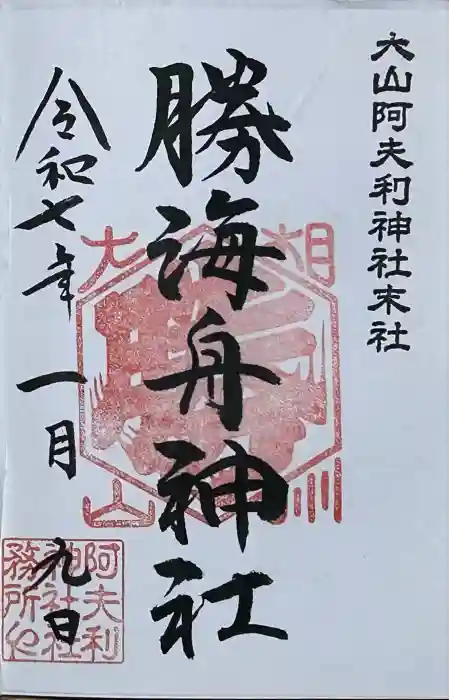 大山阿夫利神社末社
勝海舟神社
令和七年一月九日
相
州
大
山
阿夫利
神社社
務所印